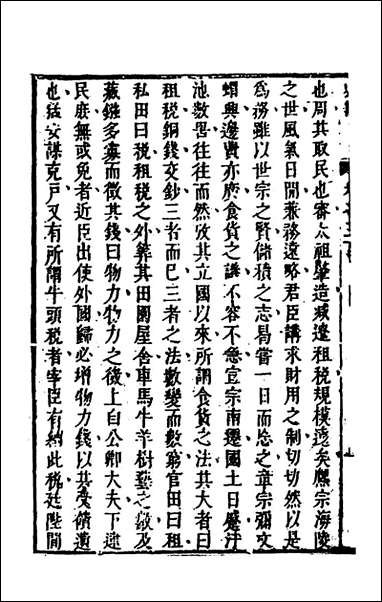 也周其取民也審太祖肇造減遼租税規模遠矣熙宗海陵
之世風氣日開兼務遠略君臣講求財用之制切切然以是
為務雖以世宗之賢儲積之志曷嘗一日而忘之章宗彌文
煟興邊費亦廣食貨之議不容不急宣宗南遷國土日蹙汙
池數罟往往而然攷其立國以來所謂食貨之法其大者曰
租税銅錢交鈔三者而已三者之法數變而數窮官田曰租
私田曰税租税之外算其田園屋舍車馬牛羊樹藝之數及
藏鏹多寡而徵其錢曰物力物力之徵上自公卿大夫下逮
民庶無或免者近臣出使外國歸必增物力錢以其受饋遺
也猛安謀克戸又有所謂牛頭税者宰臣有納此税廷陛間